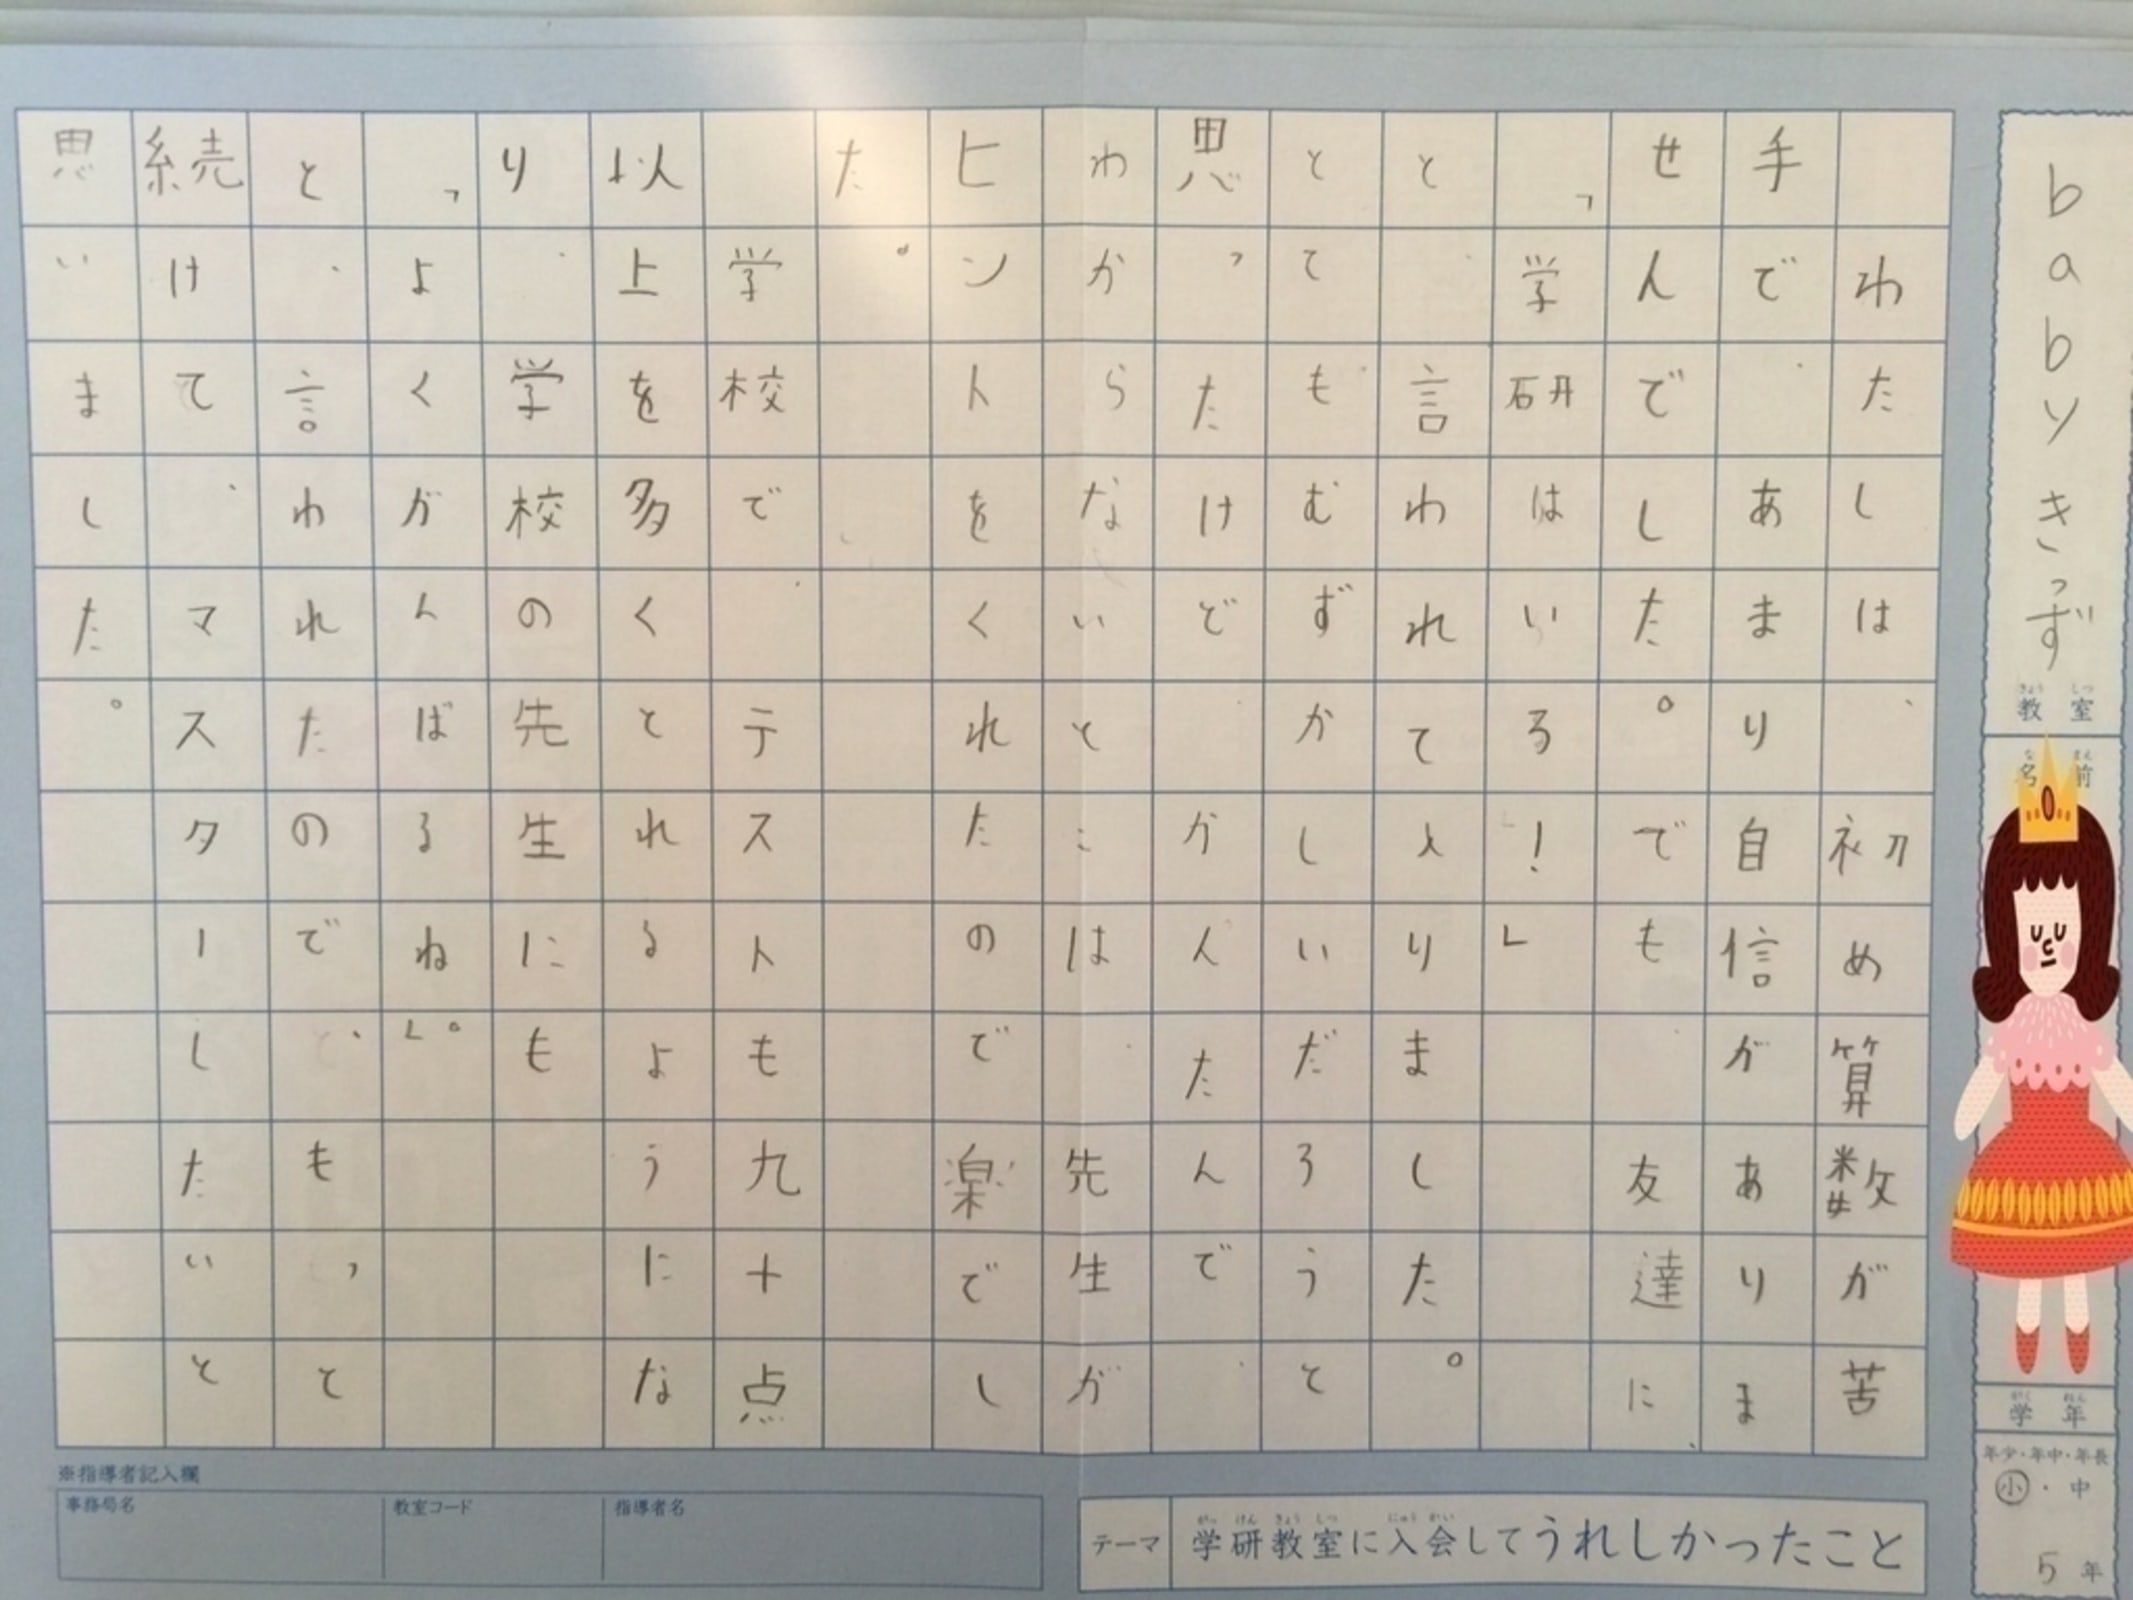 babyきっず
教室
きょうしつ
名前
なまえ
学年
がくねん
年少・年中・年長
小・中
5年
わたしは、初め算数が苦
手で、あまり自信がありま
せんでした。でも、友達に、
「学研はいる!」
と、言われて入りました。
とてもむずかしいだろうと
思ったけど かんたんで、
わからないとこは、先生が
ヒントをくれたので楽でし
た。
学校で、テストも九十点
以上を多くとれるようにな
り、学校の先生にも
「よくがんばるね。」
と、言われたので、もっと
続けて、マスターしたいと
思いました。
テーマ
がっけんきょうしつ にゅうかい
学研教室に入会してうれしかったこと
※指導者記入欄
事務局名
教室コード
指導者名